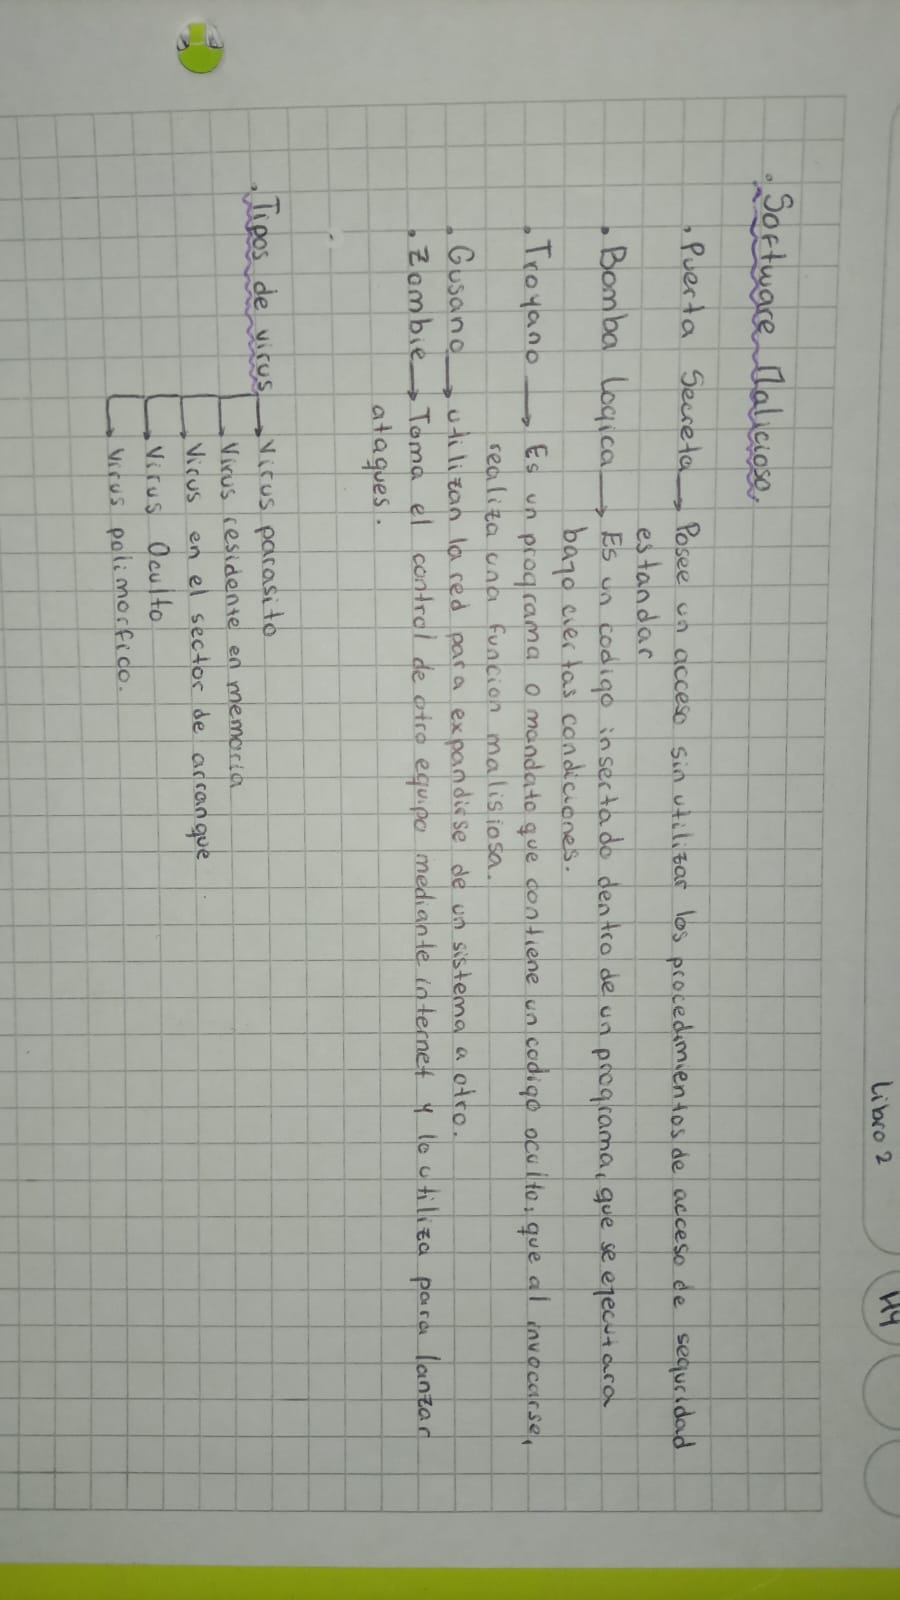 Libro 2
H4
• Software Malicioso.
• Puerta Secreta → Posee un acceso sin utilizar los procedimientos de acceso de seguridad
estandar
• Bomba Logica → Es un codigo insertado dentro de un programa, que se ejecutara
bajo ciertas condiciones.
• Troyano → Es un programa o mandato que contiene un codigo oculto, que al invocarse,
realiza una funcion malisiosa.
• Gusano → utilizan la red para expandirse de un sistema a otro.
• Zombie → Toma el control de otro equipo mediante internet y lo utiliza para lanzar
ataques.
• Tipos de virus → Virus parasito
→ Virus residente en memoria
→ Virus en el sector de arranque
→ Virus Oculto
→ Virus polimorfico.